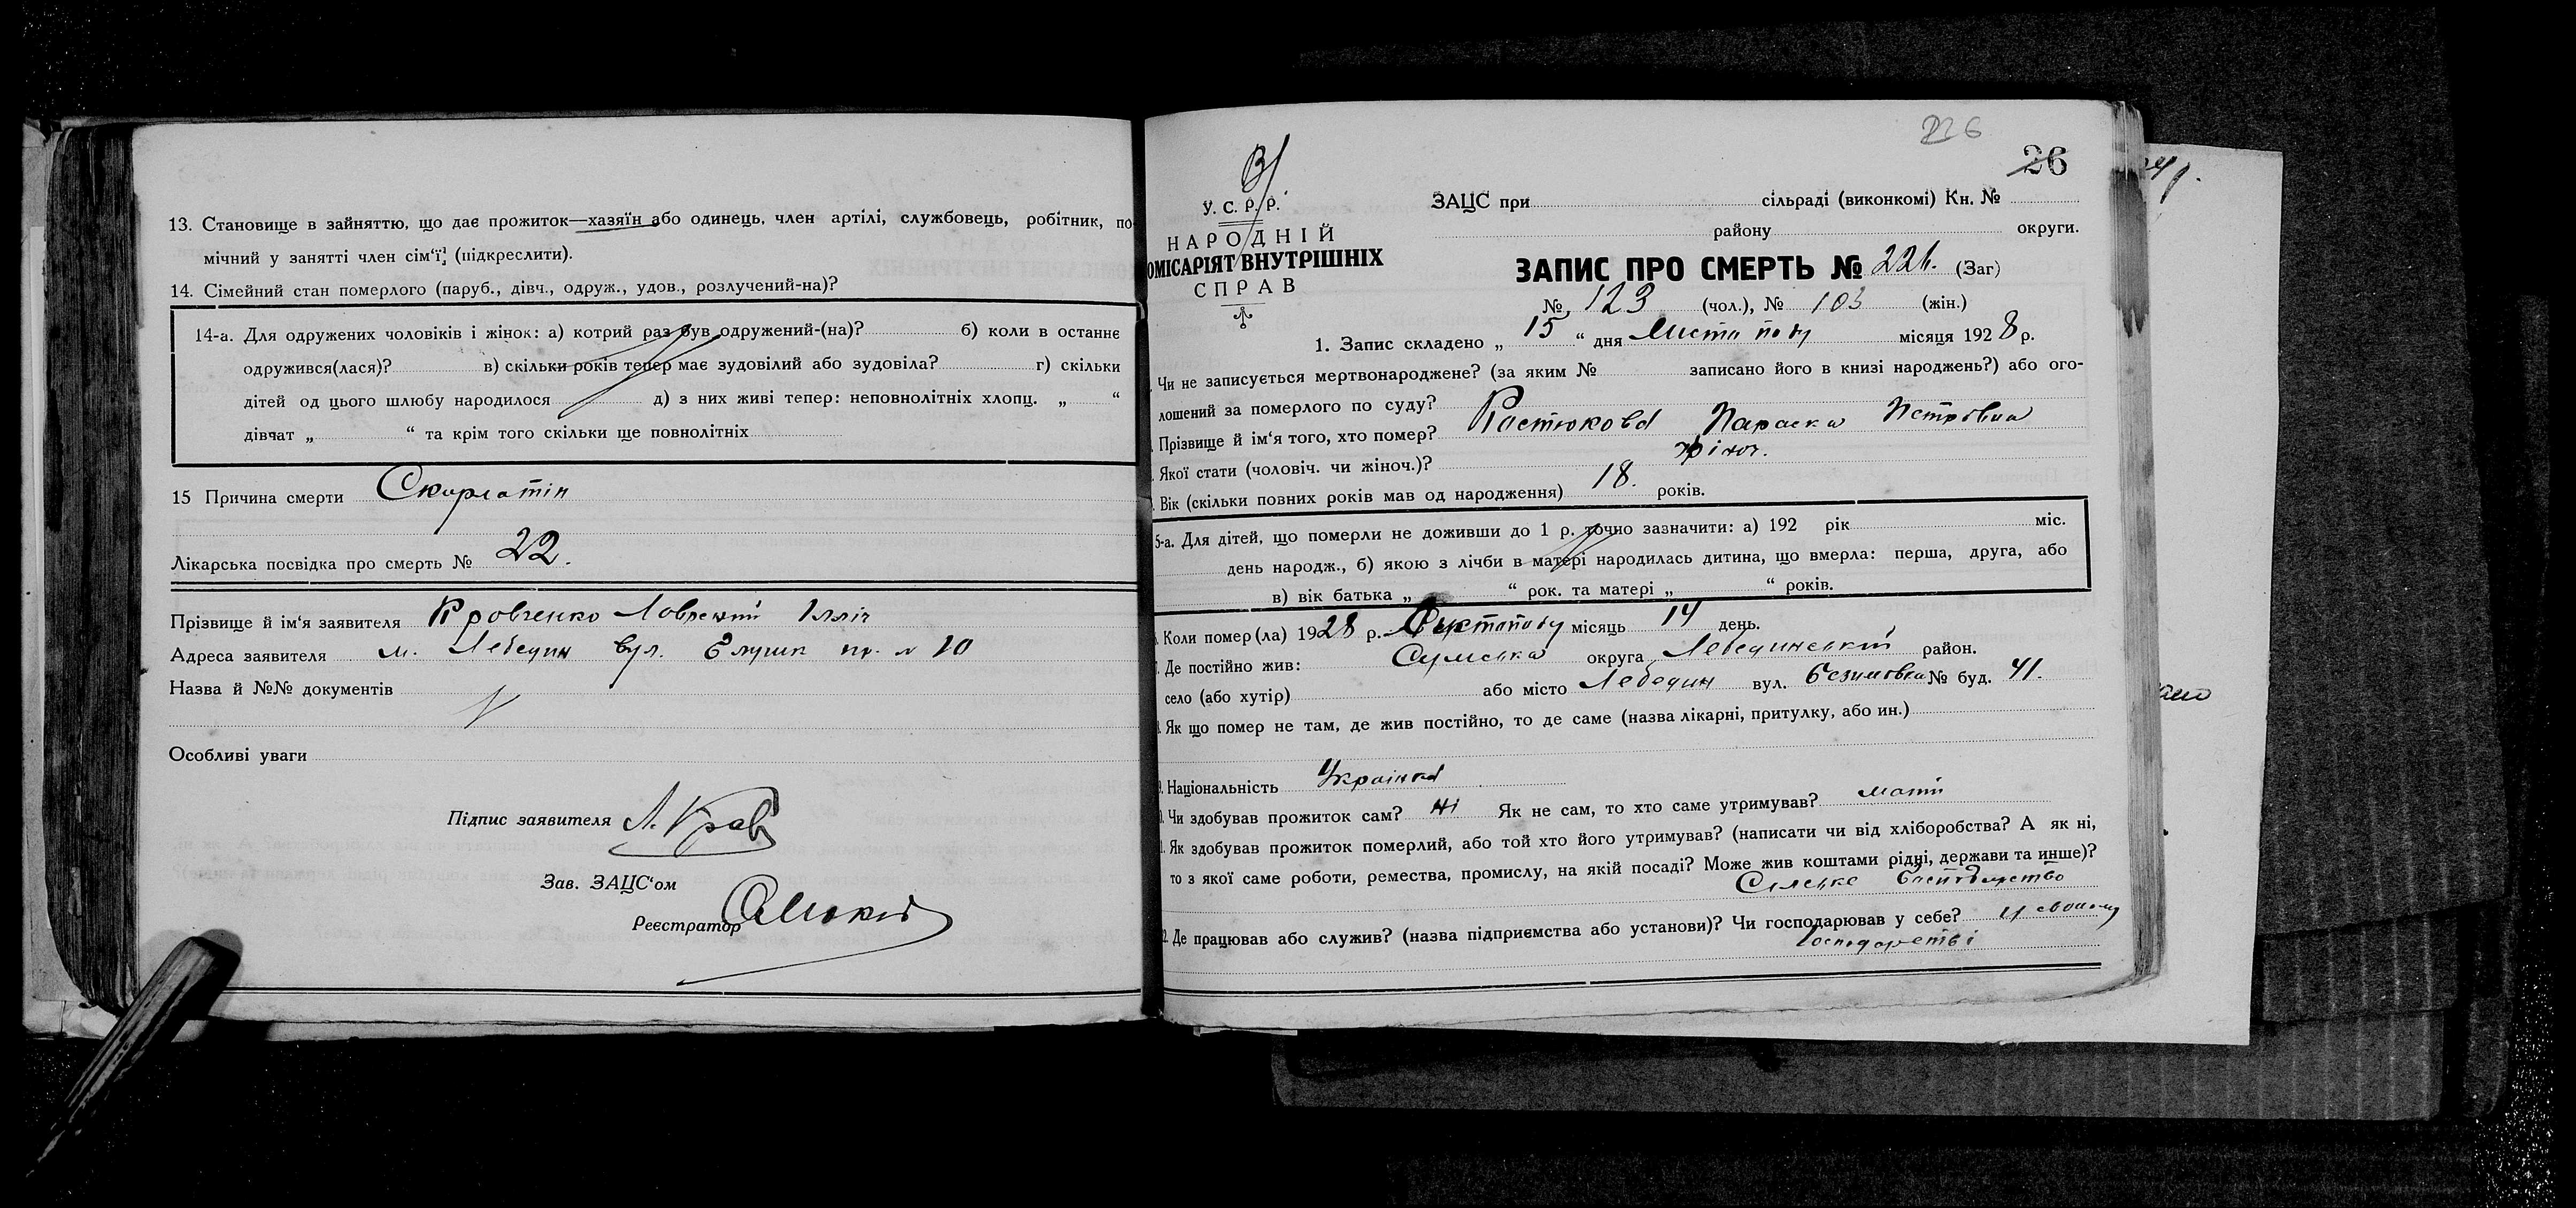 13. Становище в зайняттю, що дає прожиток—хазяїн або одинець, член артілі, службовець, робітник, по
мічний у занятті член сім‘ї; (підкреслити).
14. Сімейний стан померлого (паруб., дівч., одруж., удов., розлучений-на)?
14-а. Для одружених чоловіків і жінок: а) котрий раз був одружений-(на)? б) коли в останнє
одружився(лася)? в) скільки років тепер має зудовілий або зудовіла? г) скільки
дітей од цього шлюбу народилося д) з них живі тепер: неповнолітніх хлопц. „ “
дівчат „ “ та крім того скільки ще повнолітніх
15 Причина смерти Скарлатін
Лікарська посвідка про смерть № 22.
Прізвище й ім‘я заявителя Кровченко Ловрентій Ілліч
Адреса заявителя м. Лебедин вул. № 10
Назва й №№ документів
Особливі уваги
Підпис заявителя Л. Крав
Зав. ЗАЦС‘ом
Реєстратор
226
26
В/
У. С. Р. Р.
НАРОДНІЙ
ОМІСАРІЯТ ВНУТРІШНІХ
СПРАВ
ЗАЦС при сільраді (виконкомі) Кн. №
району округи.
ЗАПИС ПРО СМЕРТЬ № 226. (Заг)
№ 123 (чол.), № 103 (жін.)
1. Запис складено „ 15 “ дня Листопаду місяця 1928 р.
Чи не записується мертвонароджене? (за яким № записано його в книзі народжень?) або ого-
лошений за померлого по суду?
Прізвище й ім‘я того, хто помер? Костюкова Параска Петрівна
Якої стати (чоловіч. чи жіноч.)? жіноч.
Вік (скільки повних років мав од народження) 18. років.
5-а. Для дітей, що померли не доживши до 1 р. точно зазначити: а) 192 рік міс.
день народж., б) якою з лічби в матері народилась дитина, що вмерла: перша, друга, або
в) вік батька „ “ рок. та матері „ “ років.
Коли помер(ла) 1928 р. Листопаду місяць 14 день.
Де постійно жив: Сумська округа Лебединський район.
село (або хутір) або місто Лебедин вул. № буд. 41.
Як що помер не там, де жив постійно, то де саме (назва лікарні, притулку, або ин.)
Національність Українка
Чи здобував прожиток сам? ні Як не сам, то хто саме утримував? мати
Як здобував прожиток померлий, або той хто його утримував? (написати чи від хліборобства? А як ні,
то з якої саме роботи, ремества, промислу, на якій посаді? Може жив коштами рідні, держави та инше)?
Сільске Господарство
2. Де працював або служив? (назва підприємства або установи)? Чи господарював у себе? у своему
господарстві